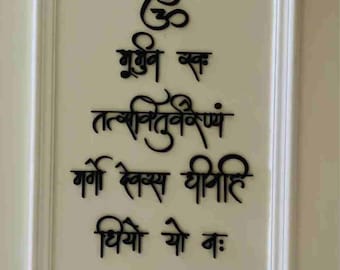 ॐ
भूर्भुव स्वः
तत्सवितुर्वरेण्यं
भर्गो देवस्य धीमहि
धियो यो नः